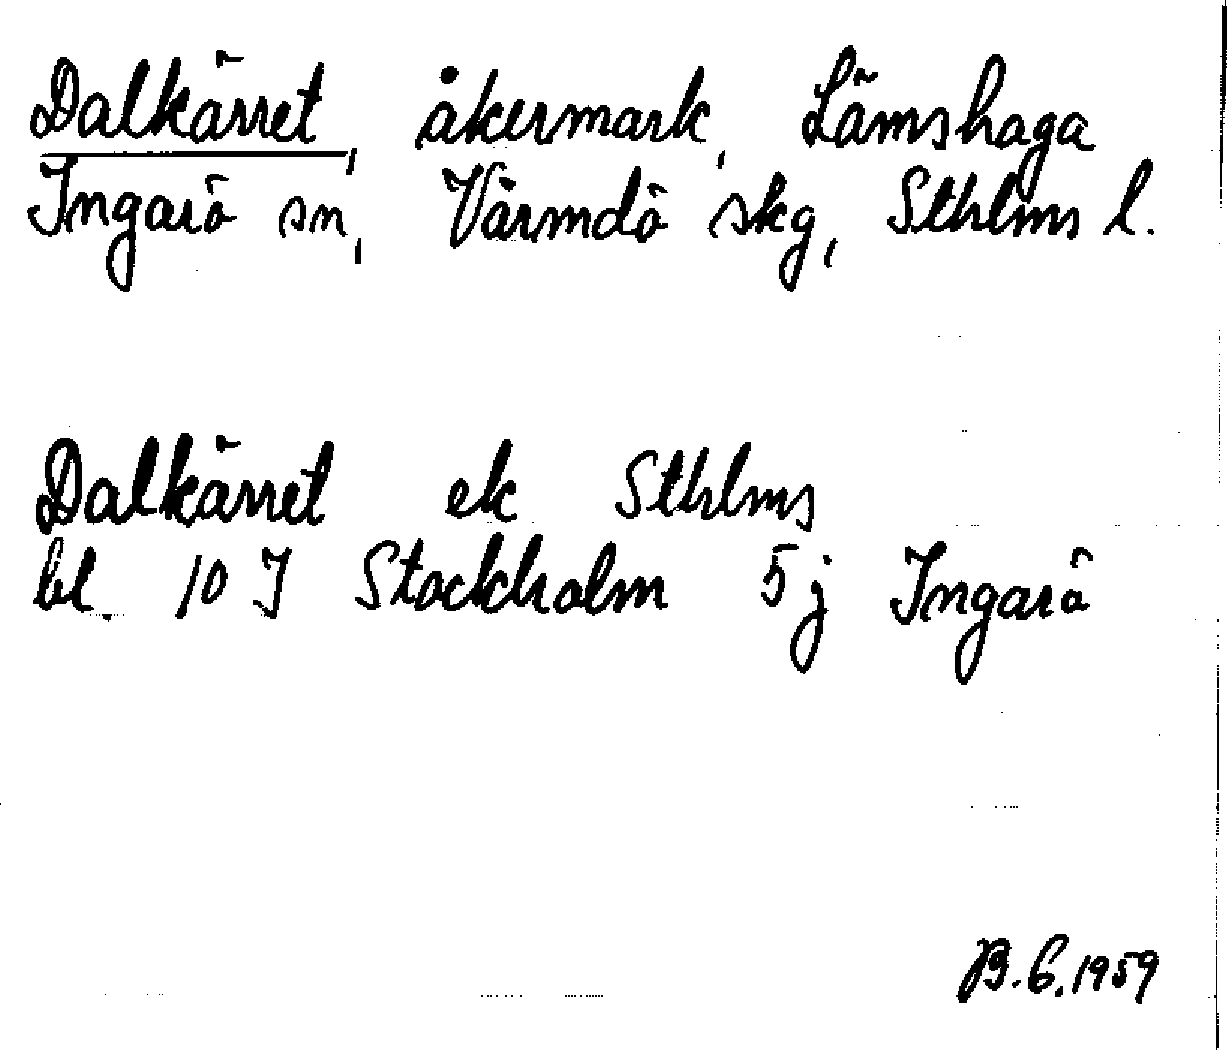 Dalkärret, åkermark, Lämshaga
Ingarö sn, Värmdö skg, Sthlms l.
Dalkärret ek Sthlms
bl. 10 I Stockholm 5 j Ingarö
B.G. 1959